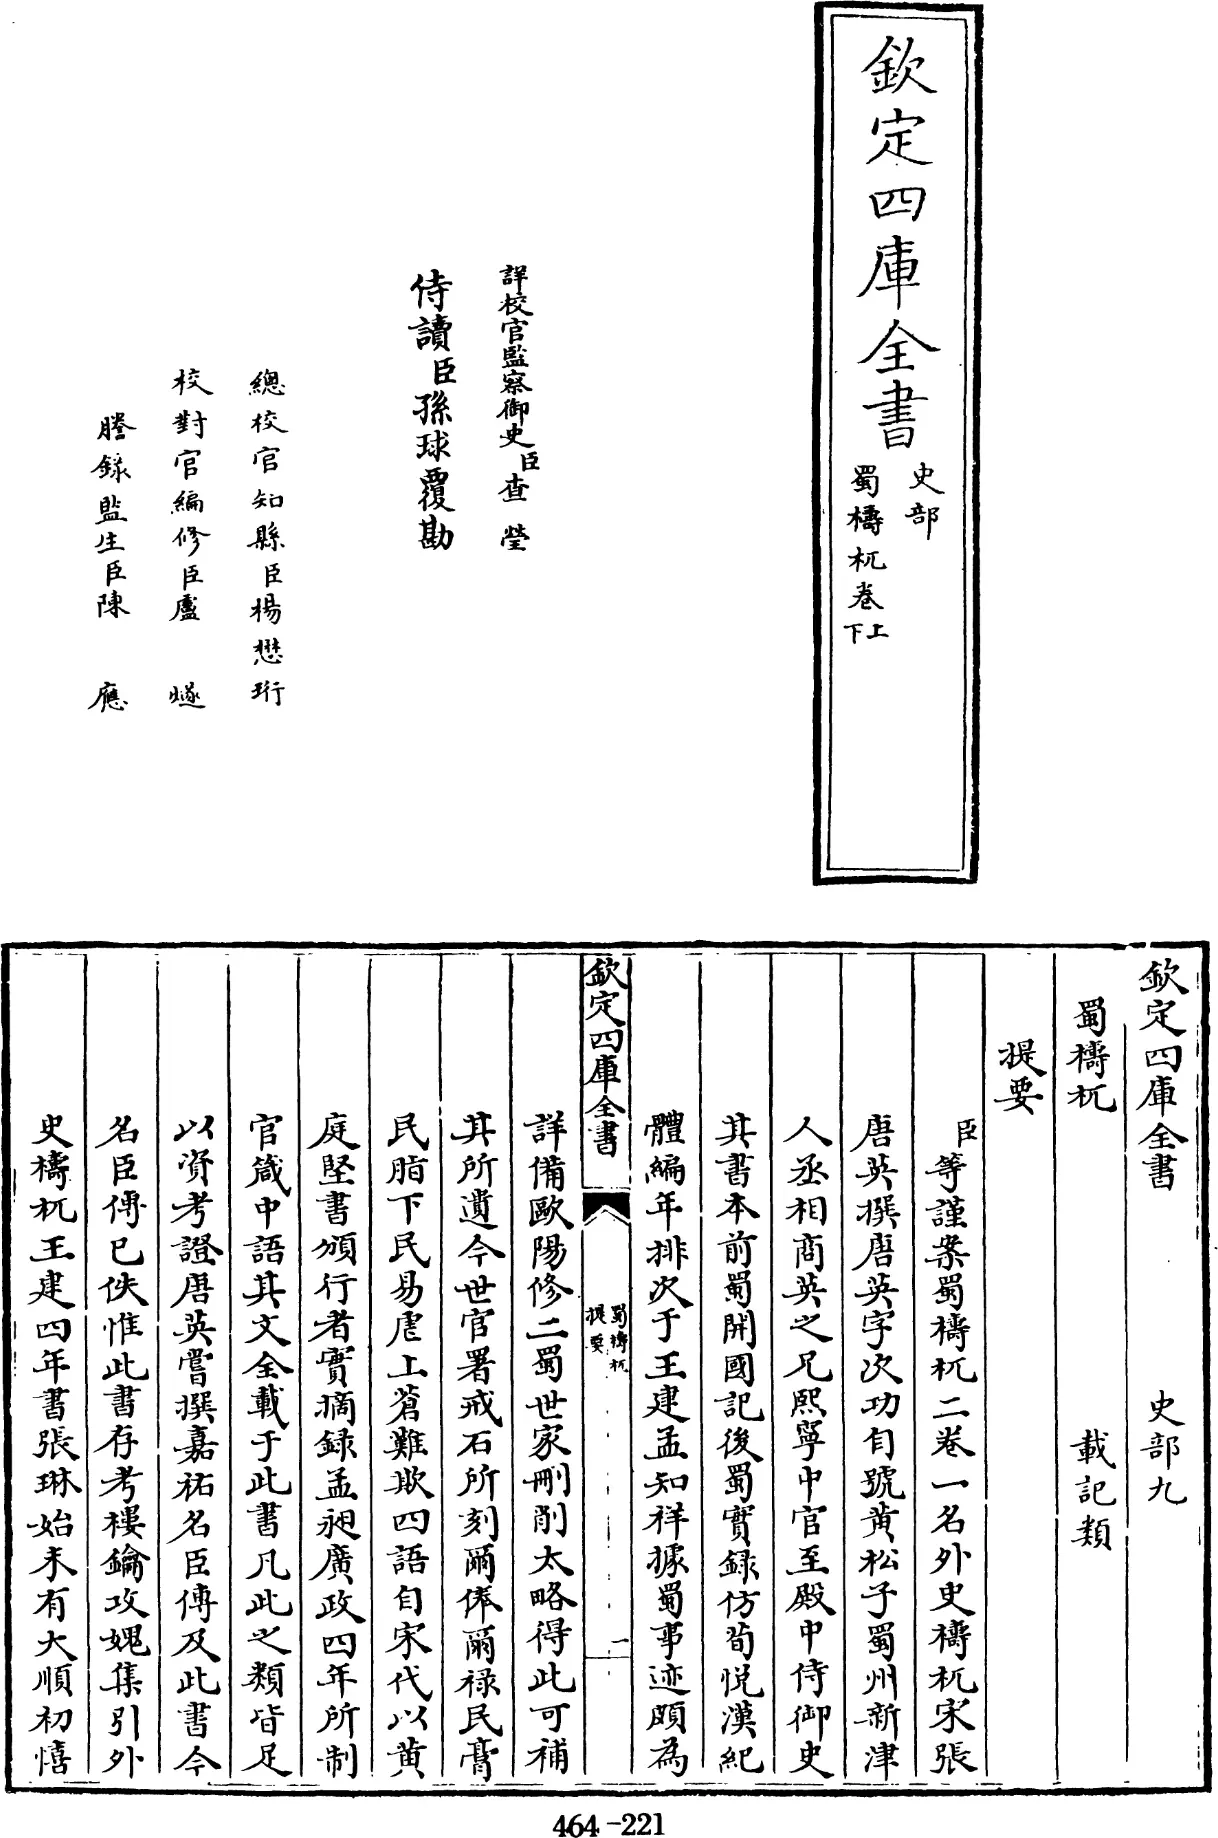 欽定四庫全書
史部
蜀檮杌卷上下
詳校官監察御史臣查瑩
侍讀臣孫球覆勘
總校官知縣臣楊懋珩
校對官編修臣盧遂
謄錄監生臣陳應
欽定四庫全書 史部九
蜀檮杌 載記類
提要
臣等謹案蜀檮杌二卷一名外史檮杌宋張
唐英撰唐英字次功自號黄松子蜀州新津
人丞相商英之兄熙寧中官至殿中侍御史
其書本前蜀開國記後蜀實録仿荀悅漢紀
體編年排次于王建孟知祥據蜀事迹頗為
欽定四庫全書
蜀檮杌
提要
一
詳備歐陽修二蜀世家刪削太略得此可補
其所遺今世官署戒石所刻爾俸爾祿民膏
民脂下民易虐上蒼難欺四語自宋代以黄
庭堅書頒行者實摘録孟昶廣政四年所制
官箴中語其文全載于此書凡此之類皆足
以資考證唐英嘗撰嘉祐名臣傳及此書今
名臣傳已佚惟此書存考樓鑰攻媿集引外
史檮杌王建四年書張琳始末有大順初僖
464-221